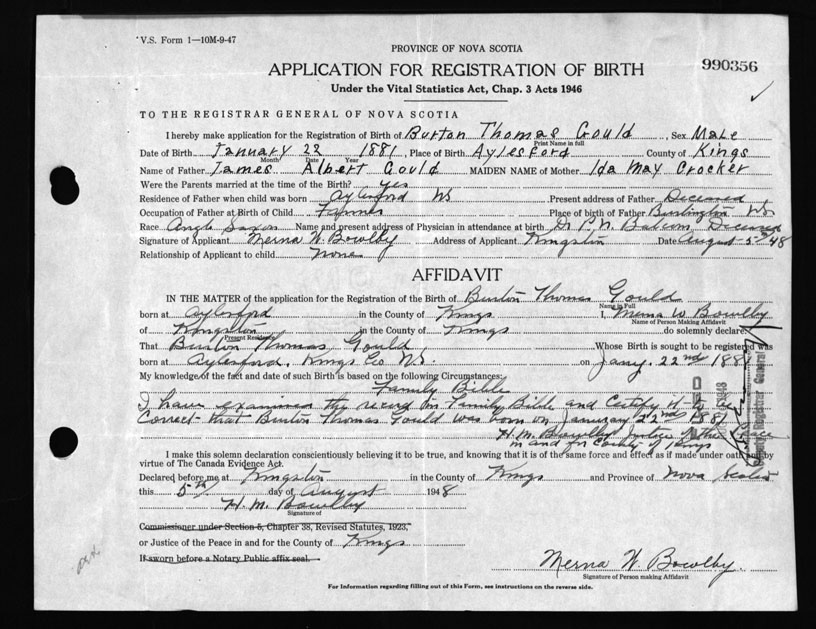 V.S. Form 1—10M-9-47
PROVINCE OF NOVA SCOTIA
990356
APPLICATION FOR REGISTRATION OF BIRTH
Under the Vital Statistics Act, Chap. 3 Acts 1946
TO THE REGISTRAR GENERAL OF NOVA SCOTIA
I hereby make application for the Registration of Birth of Burton Thomas Gould, Sex Male
Print Name in full
Date of Birth January 22 1881, Place of Birth Aylesford County of Kings
Month Date Year
Name of Father James Albert Gould MAIDEN NAME of Mother Ida May Crocker
Were the Parents married at the time of the Birth? Yes
Residence of Father when child was born Aylesford NS Present address of Father Deceased
Occupation of Father at Birth of Child Farmer Place of birth of Father Burlington NS
Race Anglo Saxon Name and present address of Physician in attendance at birth Dr P. N. Balcom Deceased
Signature of Applicant Merna W. Bowlby Address of Applicant Kingston Date August 5th/48
Relationship of Applicant to child None
AFFIDAVIT
IN THE MATTER of the application for the Registration of the Birth of Burton Thomas Gould
Name in Full
born at Aylesford in the County of Kings I, Merna W Bowlby
Name of Person Making Affidavit
of Kingston in the County of Kings do solemnly declare:
Present Residence
That Burton Thomas Gould Whose Birth is sought to be registered was
born at Aylesford, Kings Co NS. on Jany. 22nd 1881
My knowledge of the fact and date of such Birth is based on the following Circumstances:
Family Bible
I have examined the record in Family Bible and Certify it to be
Correct that Burton Thomas Gould was born on January 22nd 1881
H. M. Bowlby Justice of the Peace
in and for County of Kings
Registrar General
I make this solemn declaration conscientiously believing it to be true, and knowing that it is of the same force and effect as if made under oath and by
virtue of The Canada Evidence Act.
Declared before me at Kingston in the County of Kings and Province of Nova Scotia
this 5th day of August 1948
H. M. Bowlby
Signature of
Commissioner under Section 5, Chapter 38, Revised Statutes, 1923,
or Justice of the Peace in and for County of Kings
If sworn before a Notary Public affix seal.
Merna W. Bowlby
Signature of Person making Affidavit
For Information regarding filling out of this Form, see instructions on the reverse side.